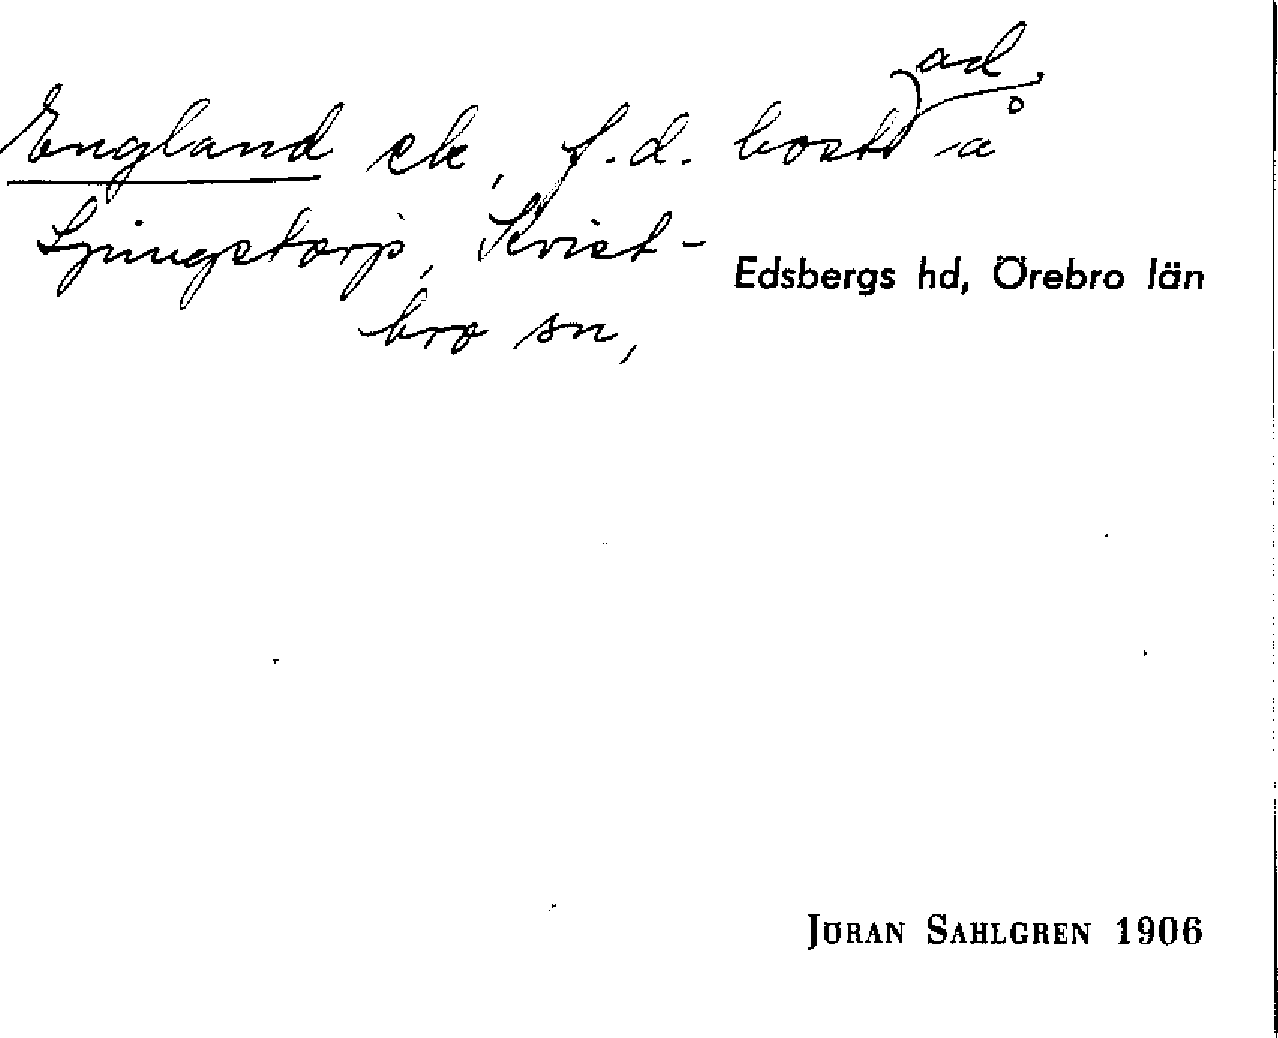 England ek, f.d. bostad på
Ljungstorp, Kvist-
bro sn,
Edsbergs hd, Örebro län
JÖRAN SAHLGREN 1906